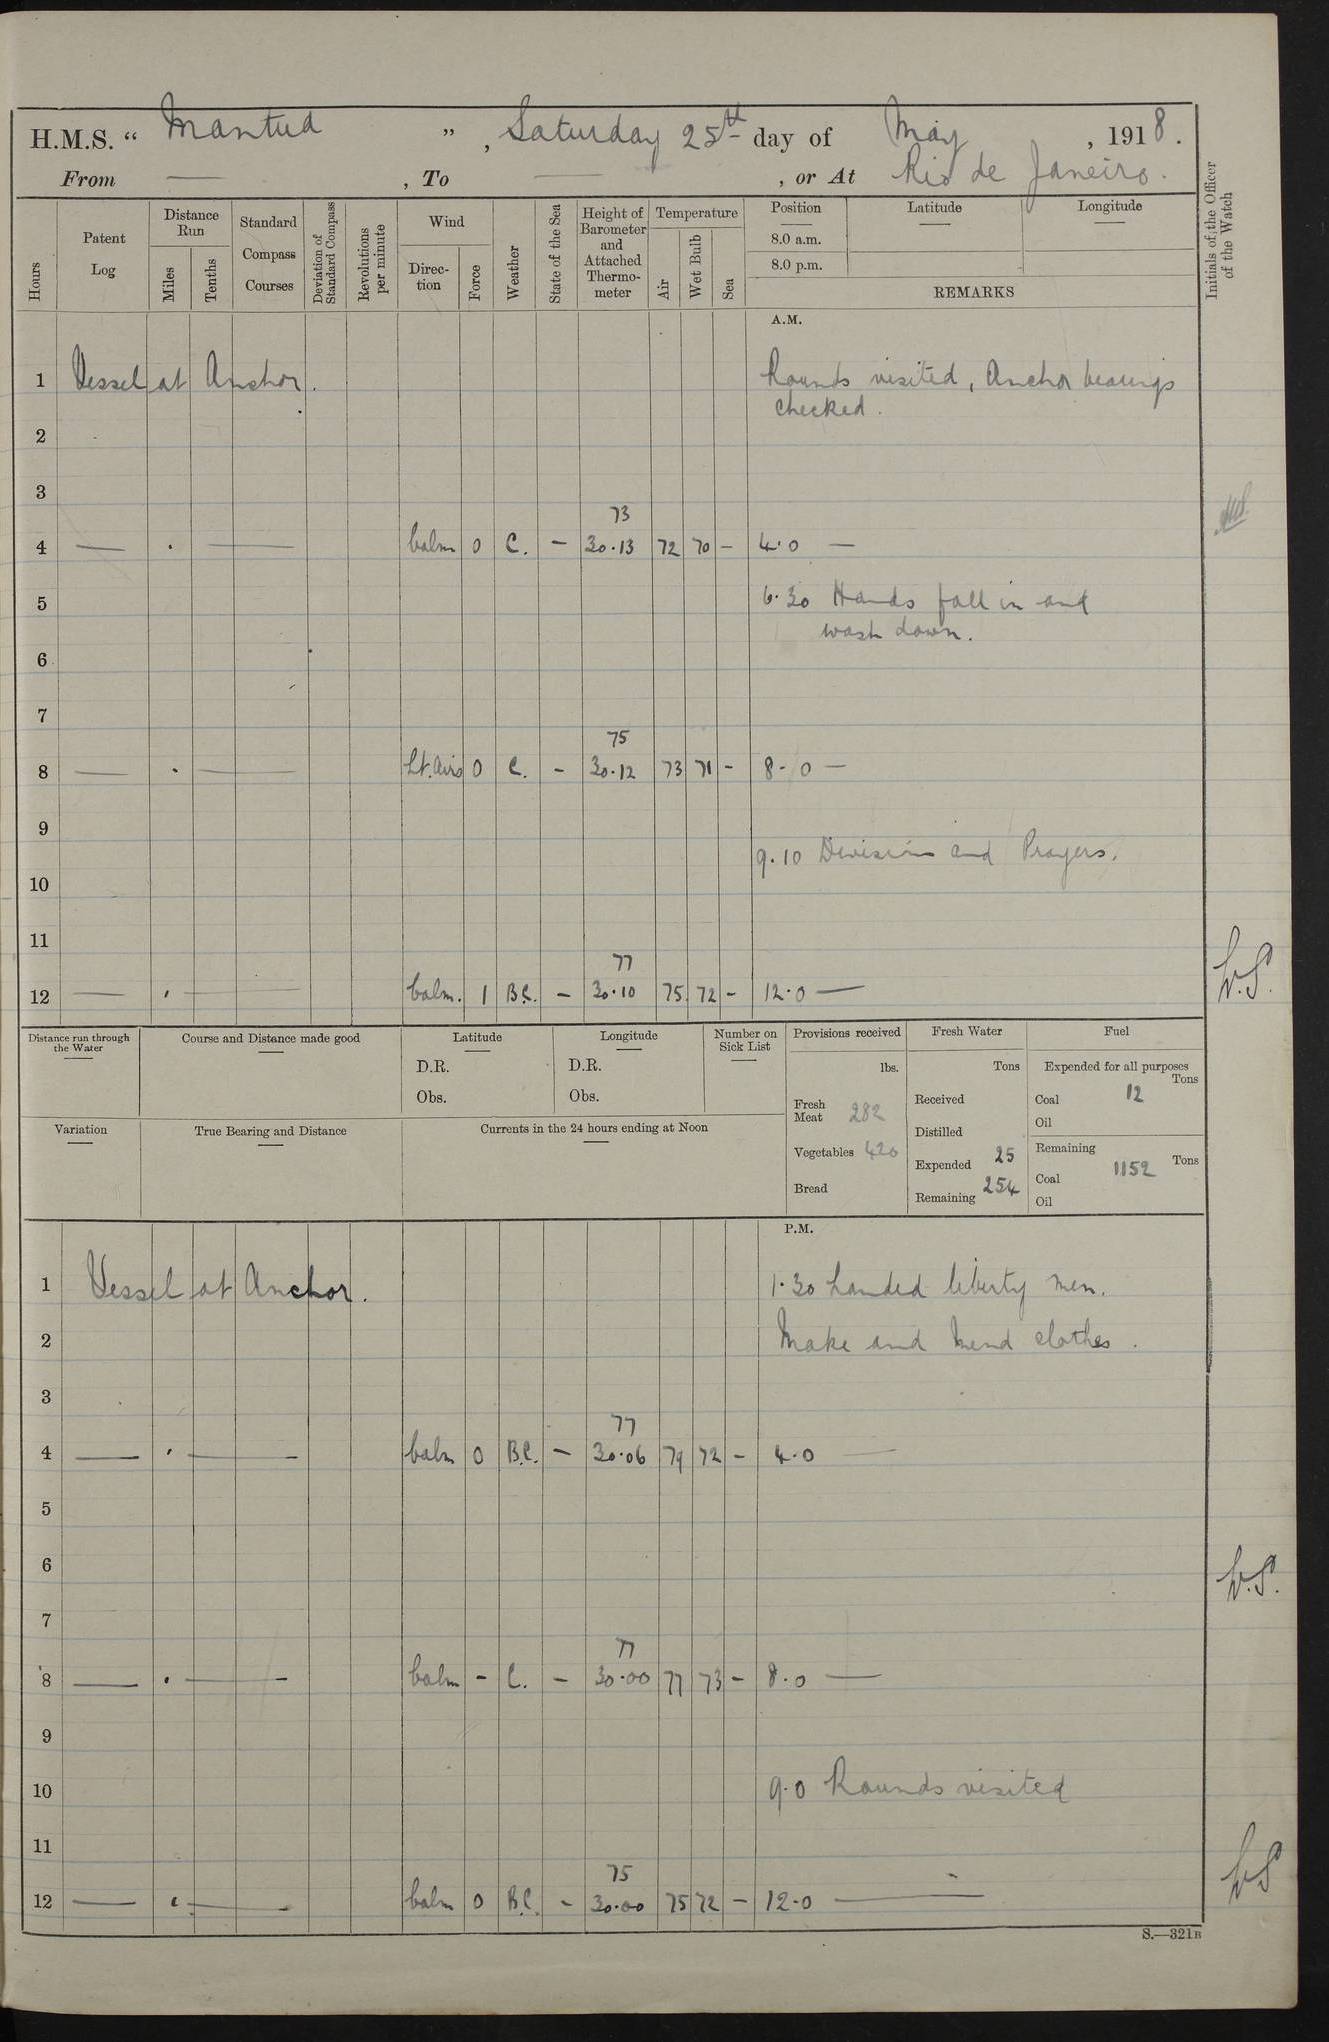 H.M.S. “ Mantua ” , Saturday 25th day of May , 1918.
From — , To — , or At Rio de Janeiro.
Hours
Patent Log
Distance Run
Miles
Tenths
Standard Compass Courses
Deviation of Standard Compass
Revolutions per minute
Wind
Direc-tion
Force
Weather
State of the Sea
Height of Barometer and Attached Thermo-meter
Temperature
Air
Wet Bulb
Sea
Position
8.0 a.m.
8.0 p.m.
Latitude
Longitude
REMARKS
Initials of the Officer of the Watch
A.M.
1 Vessel at Anchor. Rounds visited, Anchor bearings
checked.
2
3
73
4 — . — Calm 0 C. — 30.13 72 70 – 4.0 —
5 6.30 Hands fall in and
wash down.
6
7
75
8 — . — Lt. Airs 0 C. – 30.12 73 71 – 8.0 —
9
9.10 Divisions and Prayers.
10
11
77
12 — . — Calm. 1 B.C. – 30.10 75 72 – 12.0 —
Distance run through the Water
Course and Distance made good
Latitude
D.R.
Obs.
Longitude
D.R.
Obs.
Number on Sick List
Provisions received
lbs.
Fresh Meat 282
Vegetables 420
Bread
Fresh Water
Tons
Received
Distilled
Expended 25
Remaining 254
Fuel
Expended for all purposes
Tons
Coal 12
Oil
Remaining
Tons
Coal 1152
Oil
Variation
True Bearing and Distance
Currents in the 24 hours ending at Noon
P.M.
1 Vessel at Anchor. 1.30 Landed liberty men.
2 Make and Mend clothes.
3
77
4 — . — Calm 0 B.C. – 30.06 79 72 – 4.0 —
5
6
7
77
8 — . — Calm – C. – 30.00 77 73 – 8.0 —
9
10 9.0 Rounds visited
11
75
12 — . — Calm 0 B.C. – 30.00 75 72 – 12.0 —
S.—321B